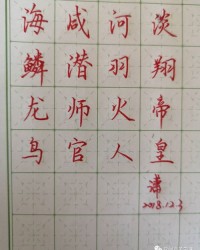 海咸河淡
鳞潜羽翔
龙师火帝
鸟官人皇
2018.12.3